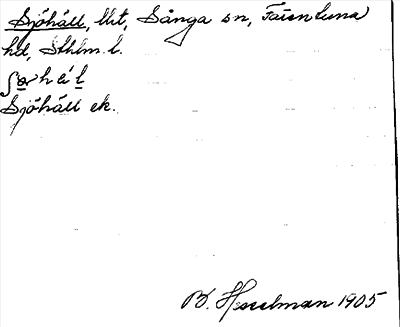 Sjöhäll, llit, Sånga sn, Färentuna
hd, Sthlm l.
Sjöhäll ek.
B. Hesselman 1905